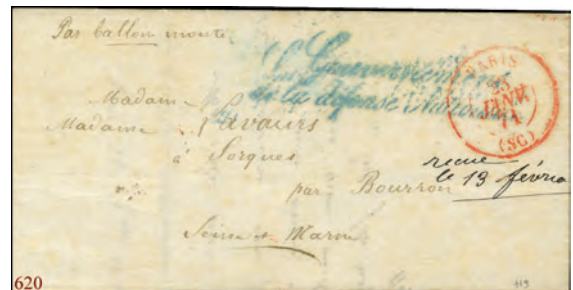 Par ballon monté
Gouvernement
de la défense Nationale
PARIS
23
JANV.
71
(SC)
Madame
Madame Lavaurs
à Sorques
par Bourron
reçue
le 13 février
Seine et Marne
620